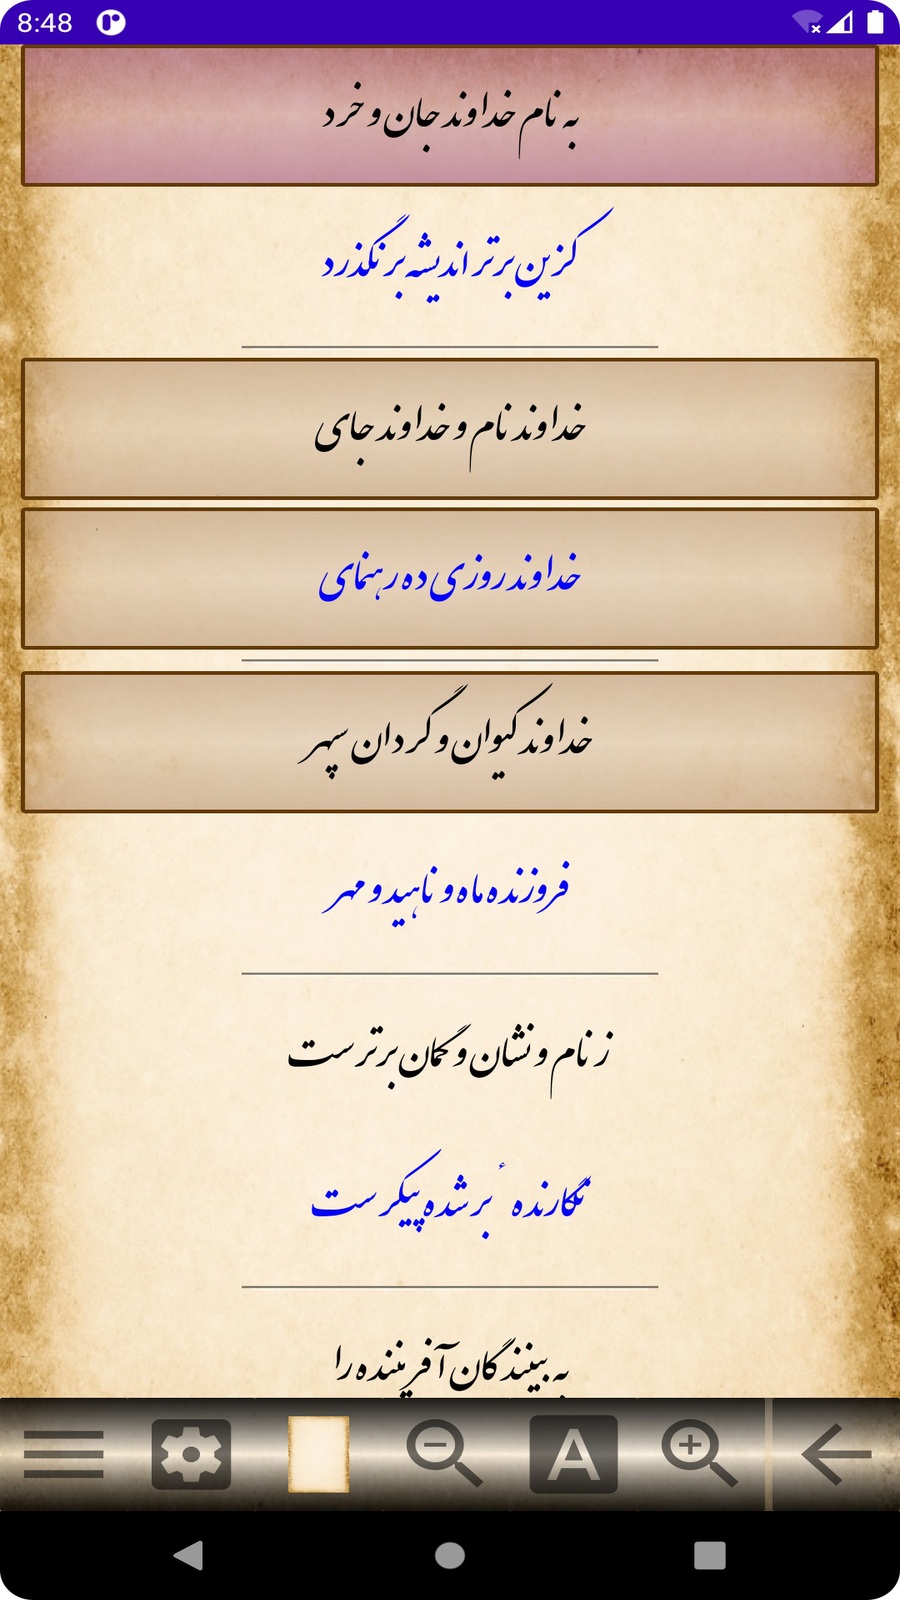 8:48
به نام خداوند جان و خرد
کزین برتر اندیشه بر نگذرد
خداوند نام و خداوند جای
خداوند روزی ده رهنمای
خداوند کیوان و گردان سپهر
فروزنده ماه و ناهید و مهر
ز نام و نشان و گمان برتر ست
نگارندهٔ بر شده پیکر ست
به بینندگان آفریننده را
A